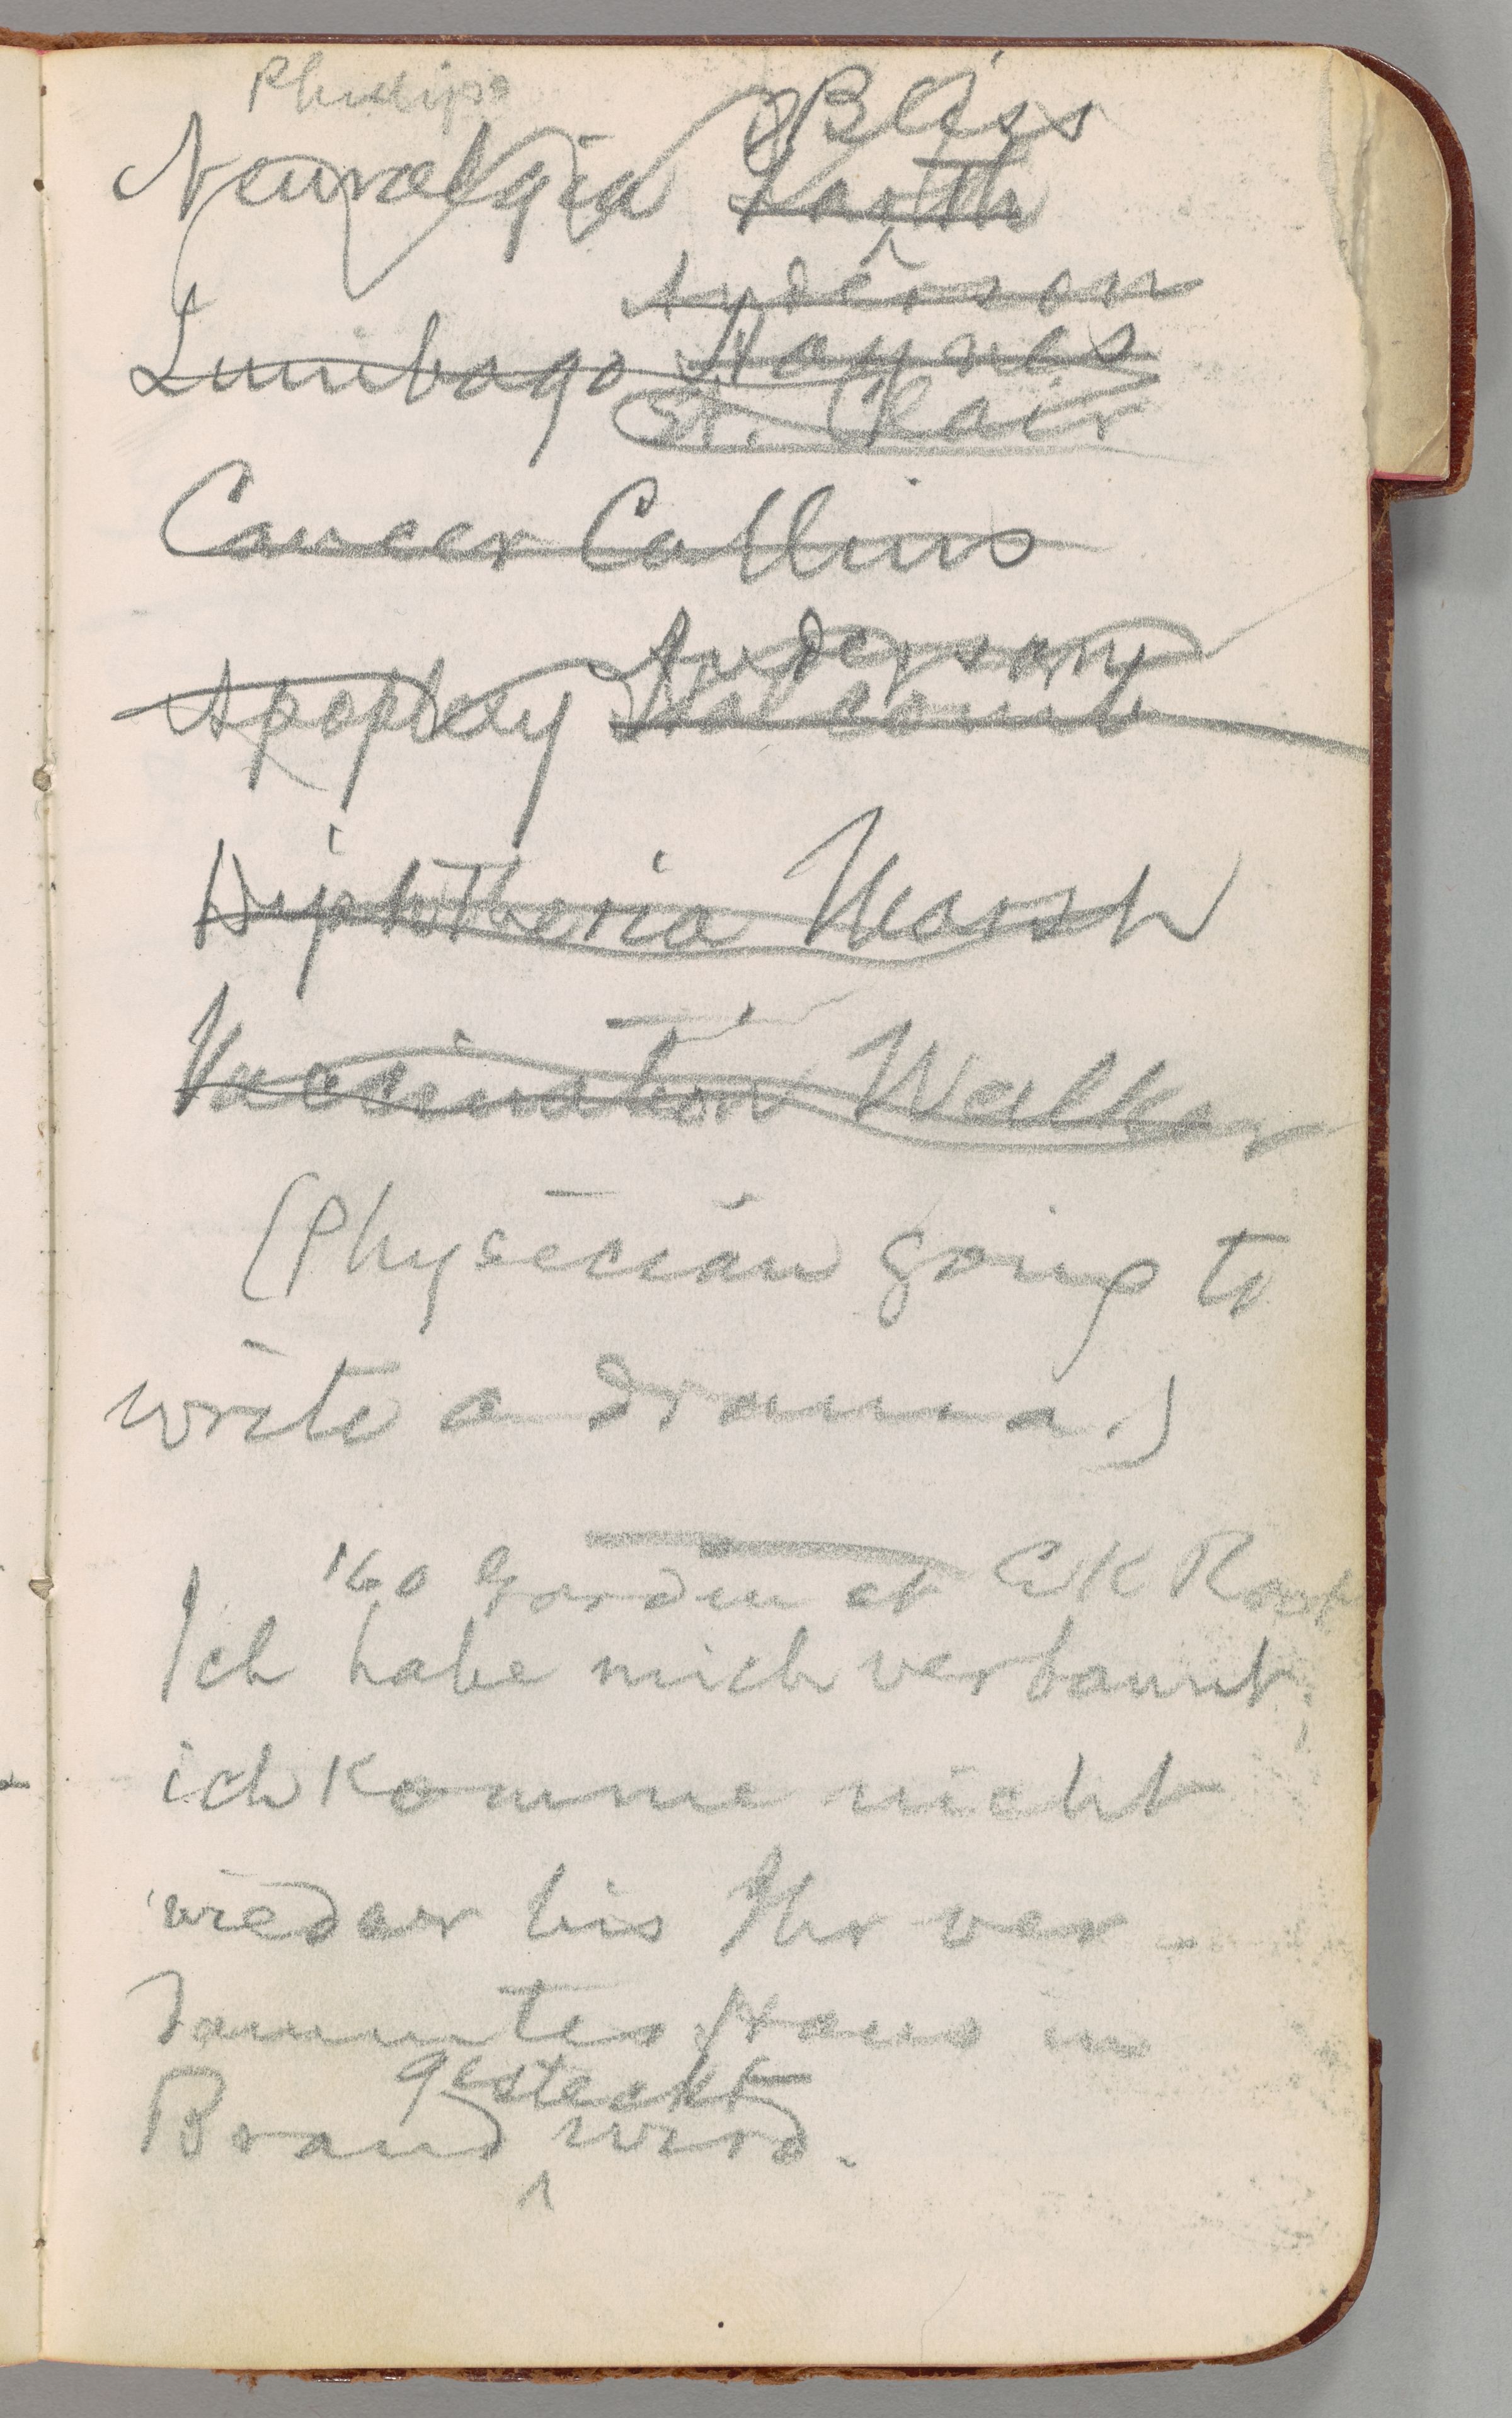 Bliss
Neuralgia
Anderson
Lumbago Haynes
St. Clair
Cancer Collins
Anderson
Apoplexy
Diphtheria Marsh
Vaccination Walker
(Physician going to
write a drama.)
Garden at
Ich habe mich verdammt;
ich komme nicht
wieder bis Ihr ver-
dammtes Haus in
gesteckt
Brand ^ wird.